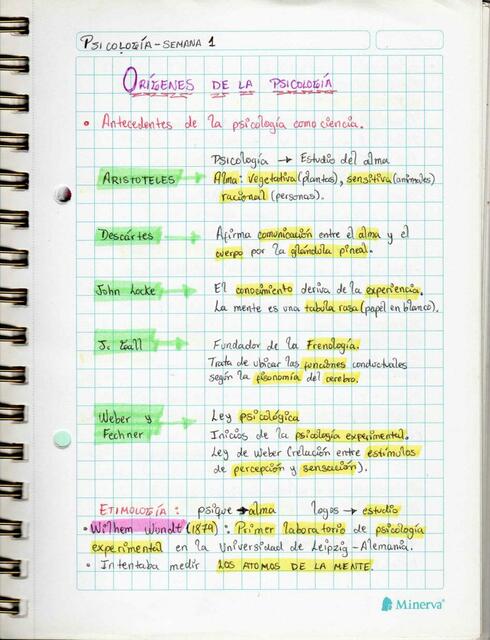 PSICOLOGÍA - SEMANA 1
ORÍGENES DE LA PSICOLOGÍA
• Antecedentes de la psicología como ciencia.
Psicología → Estudio del alma
ARISTOTELES → Alma: vegetativa (plantas), sensitiva (animales)
racional (personas).
Descártes → Afirma comunicación entre el alma y el
cuerpo por la glándula pineal.
John Locke → El conocimiento deriva de la experiencia.
La mente es una tabula rasa (papel en blanco).
J. Gall → Fundador de la Frenología.
Trata de ubicar las funciones conductuales
según la fisonomía del cerebro.
Weber y Fechner → Ley psicológica
Inicios de la psicología experimental.
Ley de Weber (relación entre estímulos
de percepción y sensación).
ETIMOLOGÍA: psique → alma logos → estudio
• Wilhem Wundt (1879): Primer laboratorio de psicología
experimental en la Universidad de Leipzig - Alemania.
• Intentaba medir LOS ATOMOS DE LA MENTE.
Minerva